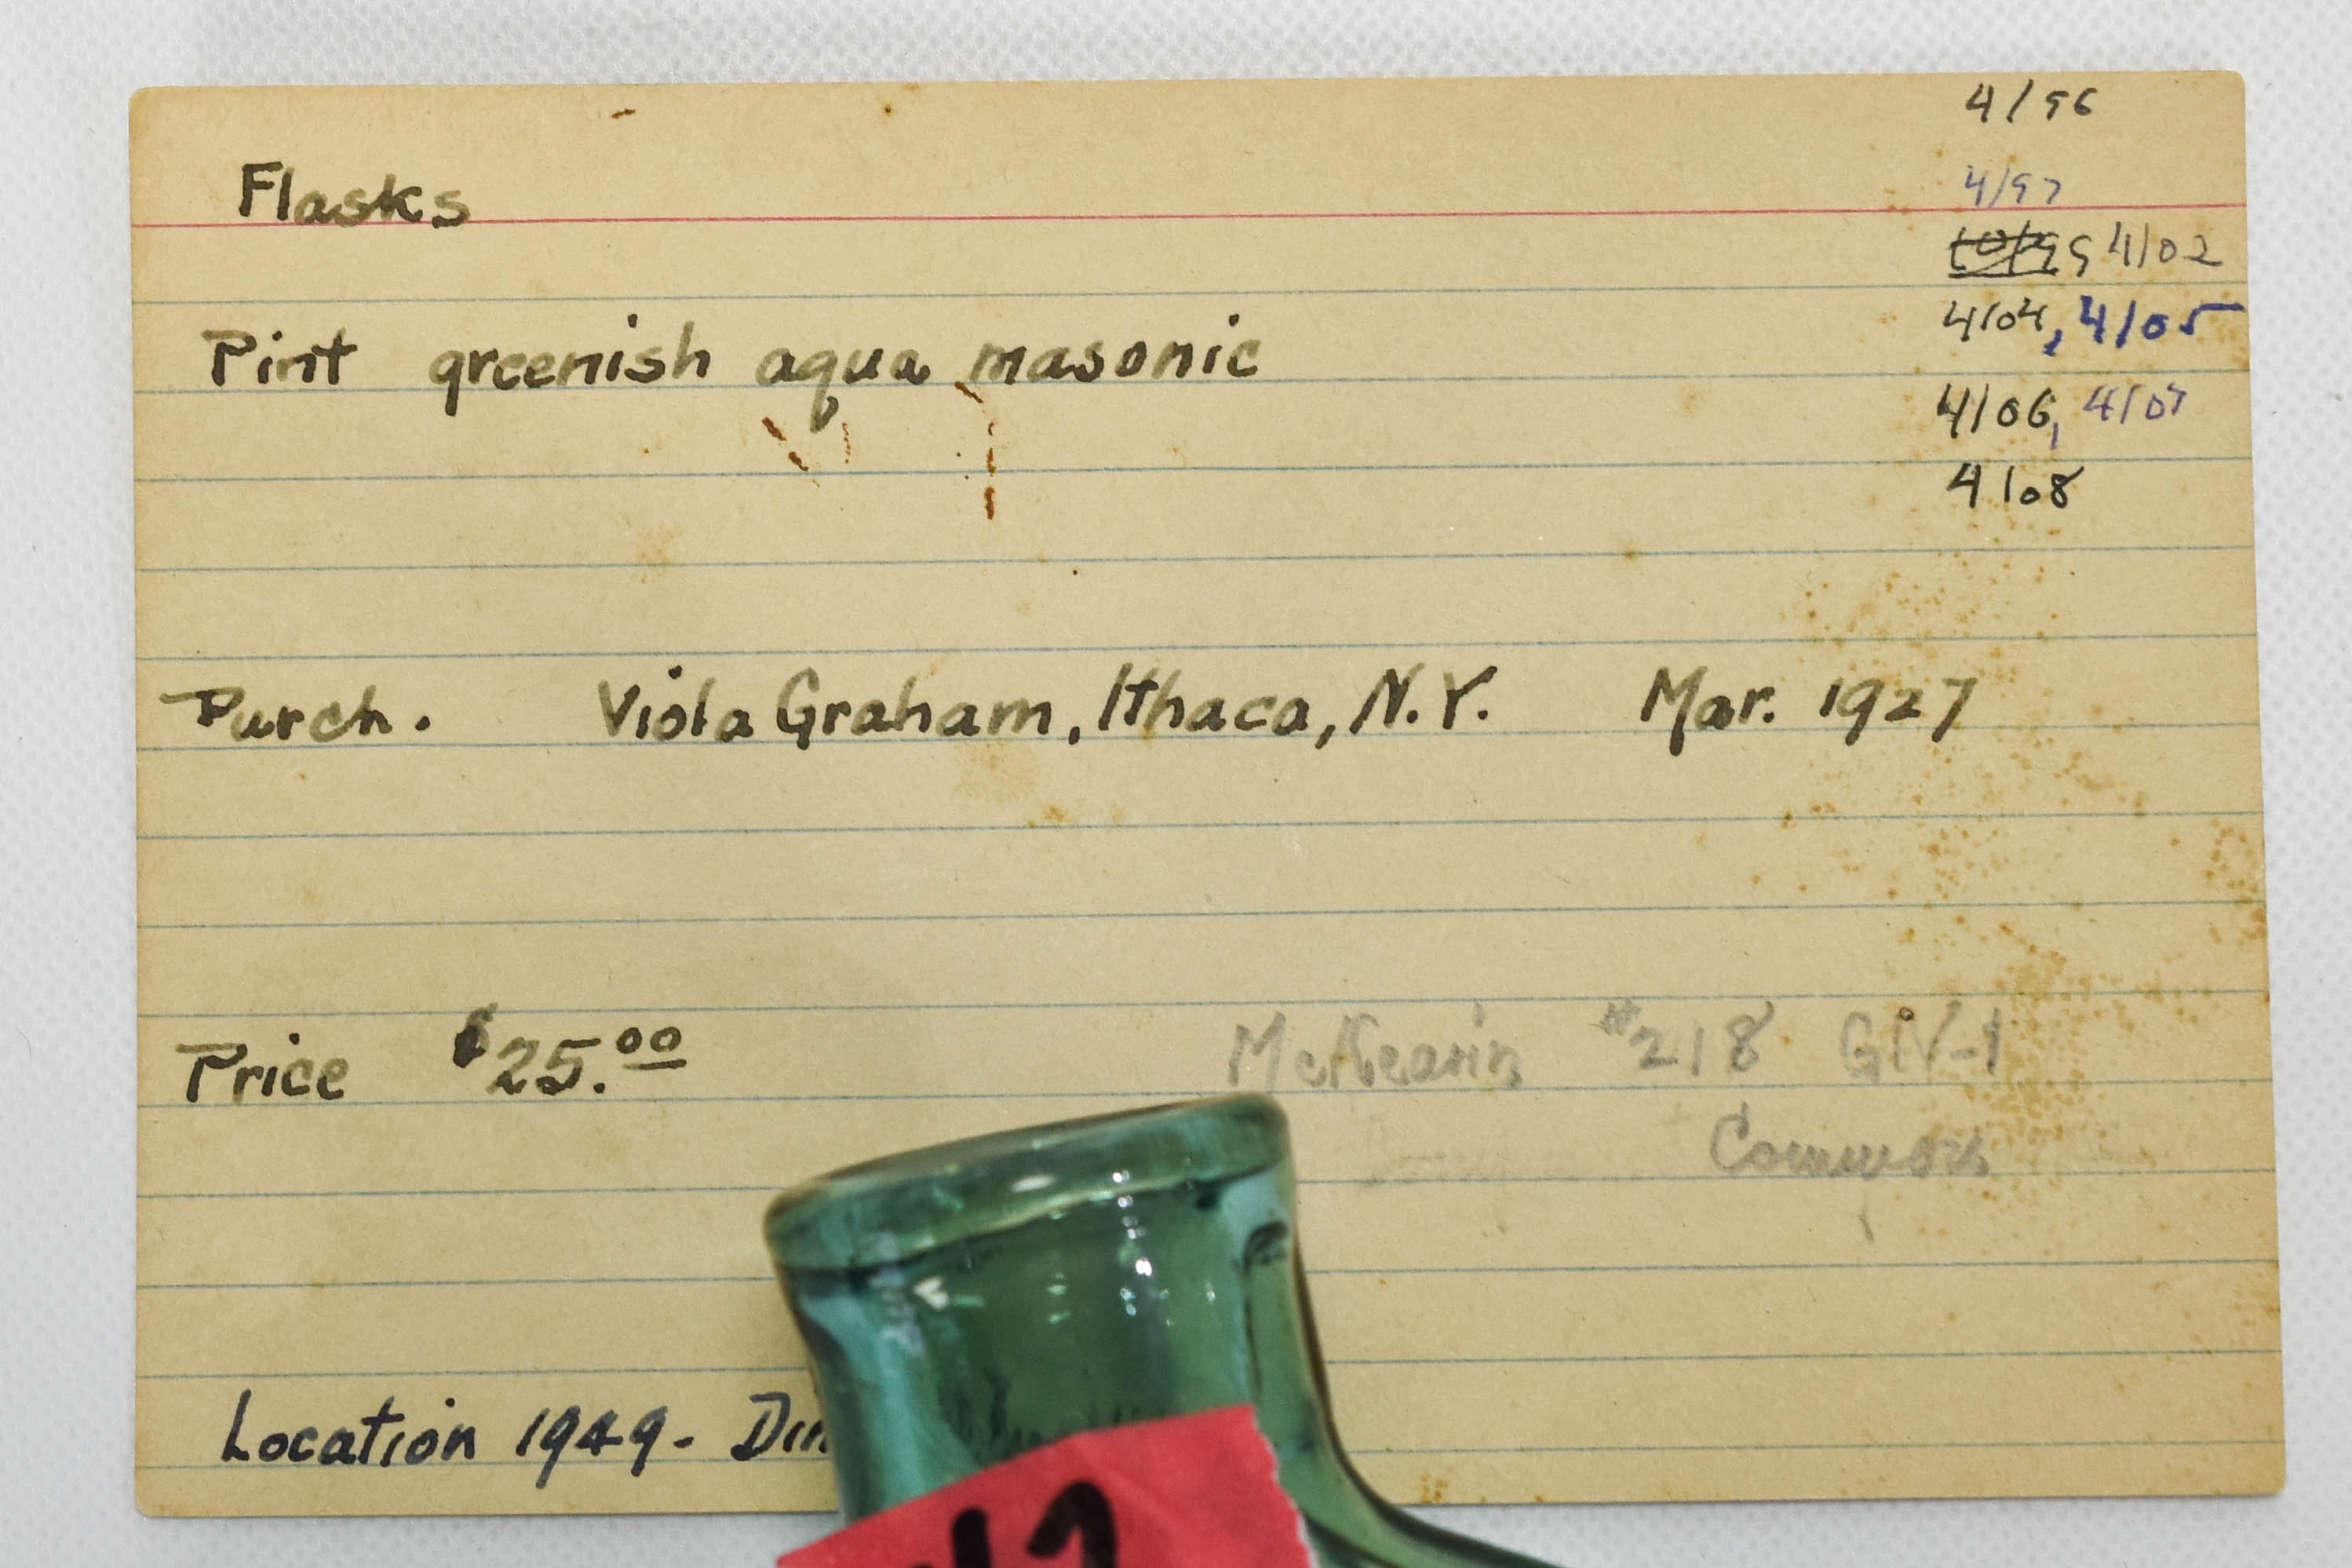 4/96
4/97
Flasks
4/02
4/04, 4/05
Pint greenish aqua masonic
4/06, 4/07
4/08
Purch. Viola Graham, Ithaca, N.Y. Mar. 1927
Price $25.00 McKearin #218 GIV-1
Common
Location 1949 -